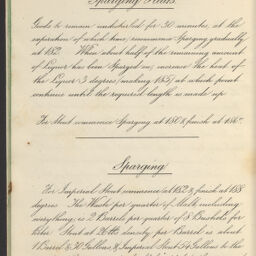 Sparging Heats.
Goods to remain undisturbed for 30 minutes, at the
expiration of which time, commence Sparging gradually
at 182. When about half of the remaining amount
of Liquor has been Sparged on, increase the heat of
the Liquor 3 degrees (making 185) at which point
continue until the required length is made up.
For Stout commence Sparging at 180 & finish at 186°.
Sparging.
For Imperial Stout commence at 182 & finish at 188
degrees. The Waste per quarter of Malt including
everything, is 2 Barrels per quarter of 8 Bushels for
bitter Stout at 26 lbs gravity per Barrel is about
1 Barrel & 30 Gallons & Imperial Stout 54 Gallons to the